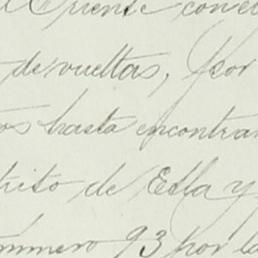 l Oriente con el
de vueltas, y por
os hasta encontrar
trito de Etla y
número 93 por la